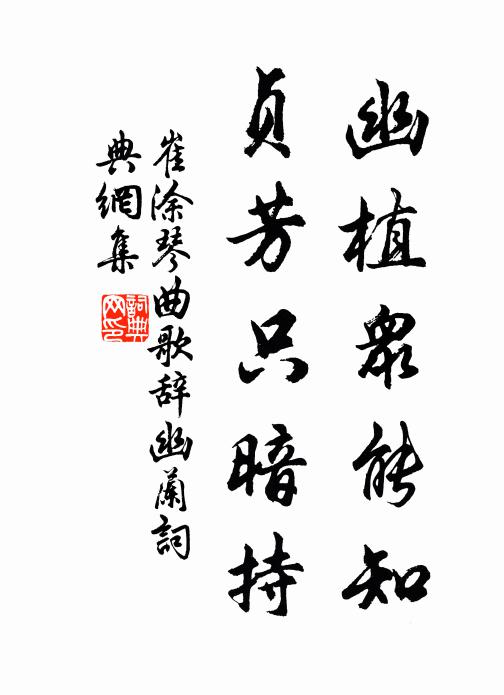 幽植眾能知
貞芳只暗持
崔涂琴曲歌辞幽蘭詞
典網集
詞典网印